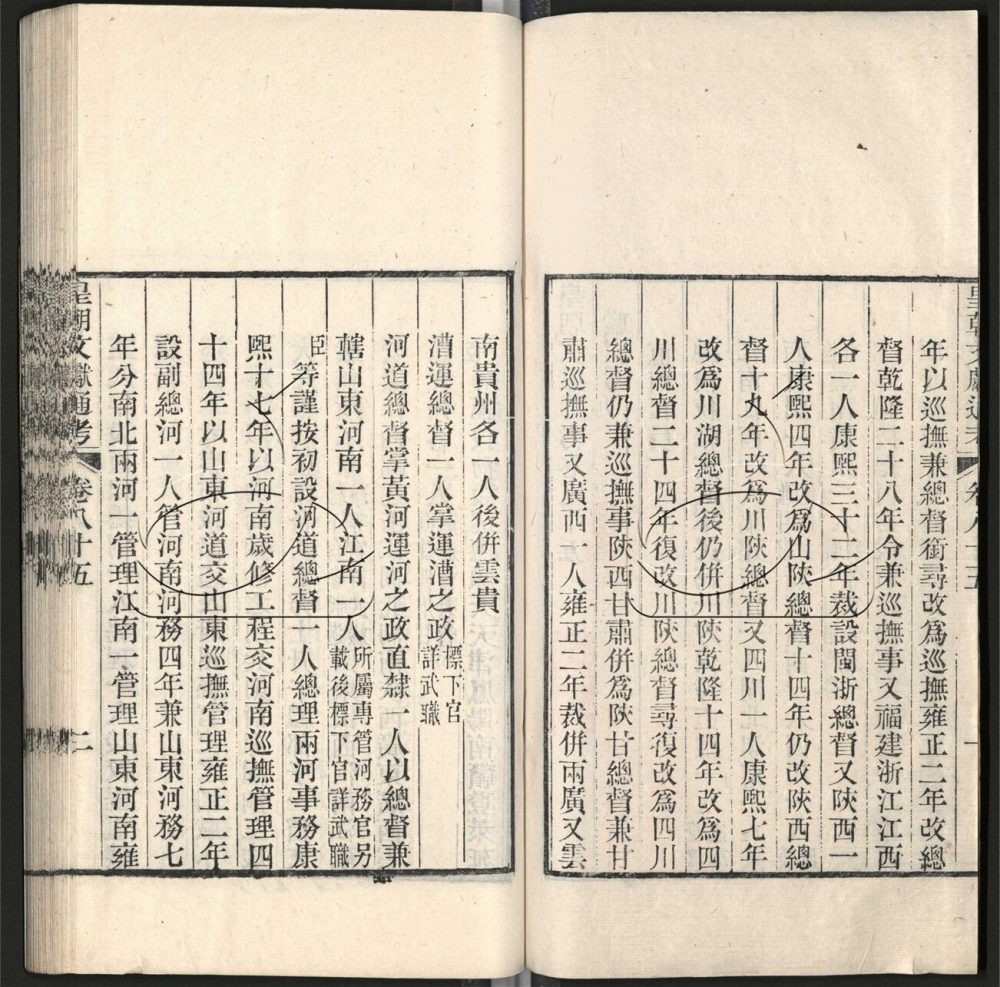 年以巡撫兼總督銜尋改爲巡撫雍正二年改總
督乾隆二十八年令兼巡撫事又福建浙江江西
各一人康熙三十二年裁設閩浙總督又陜西一
人康熙四年改爲山陜總督十四年仍改陜西總
督十九年改爲川陜總督又四川一人康熙七年
改爲川湖總督後仍併川陜乾隆十四年改爲四
川總督二十四年復改川陜總督尋復改爲四川
總督仍兼巡撫事陜西甘肅併爲陜甘總督兼甘
肅巡撫事又廣西一人雍正二年裁併兩廣又雲
南貴州各一人後併雲貴
漕運總督一人掌運漕之政標下官詳武職
河道總督掌黃河運河之政直隸一人以總督兼
轄山東河南一人江南一人所屬專管河務官另載後標下官詳武職
臣等謹按初設河道總督一人總理兩河事務康
熙十七年以河南歲修工程交河南巡撫管理四
十四年以山東河道交山東巡撫管理雍正二年
設副總河一人管河南河務四年兼山東河務七
年分南北兩河一管理江南一管理山東河南雍
皇朝文獻通考 卷八十五 二